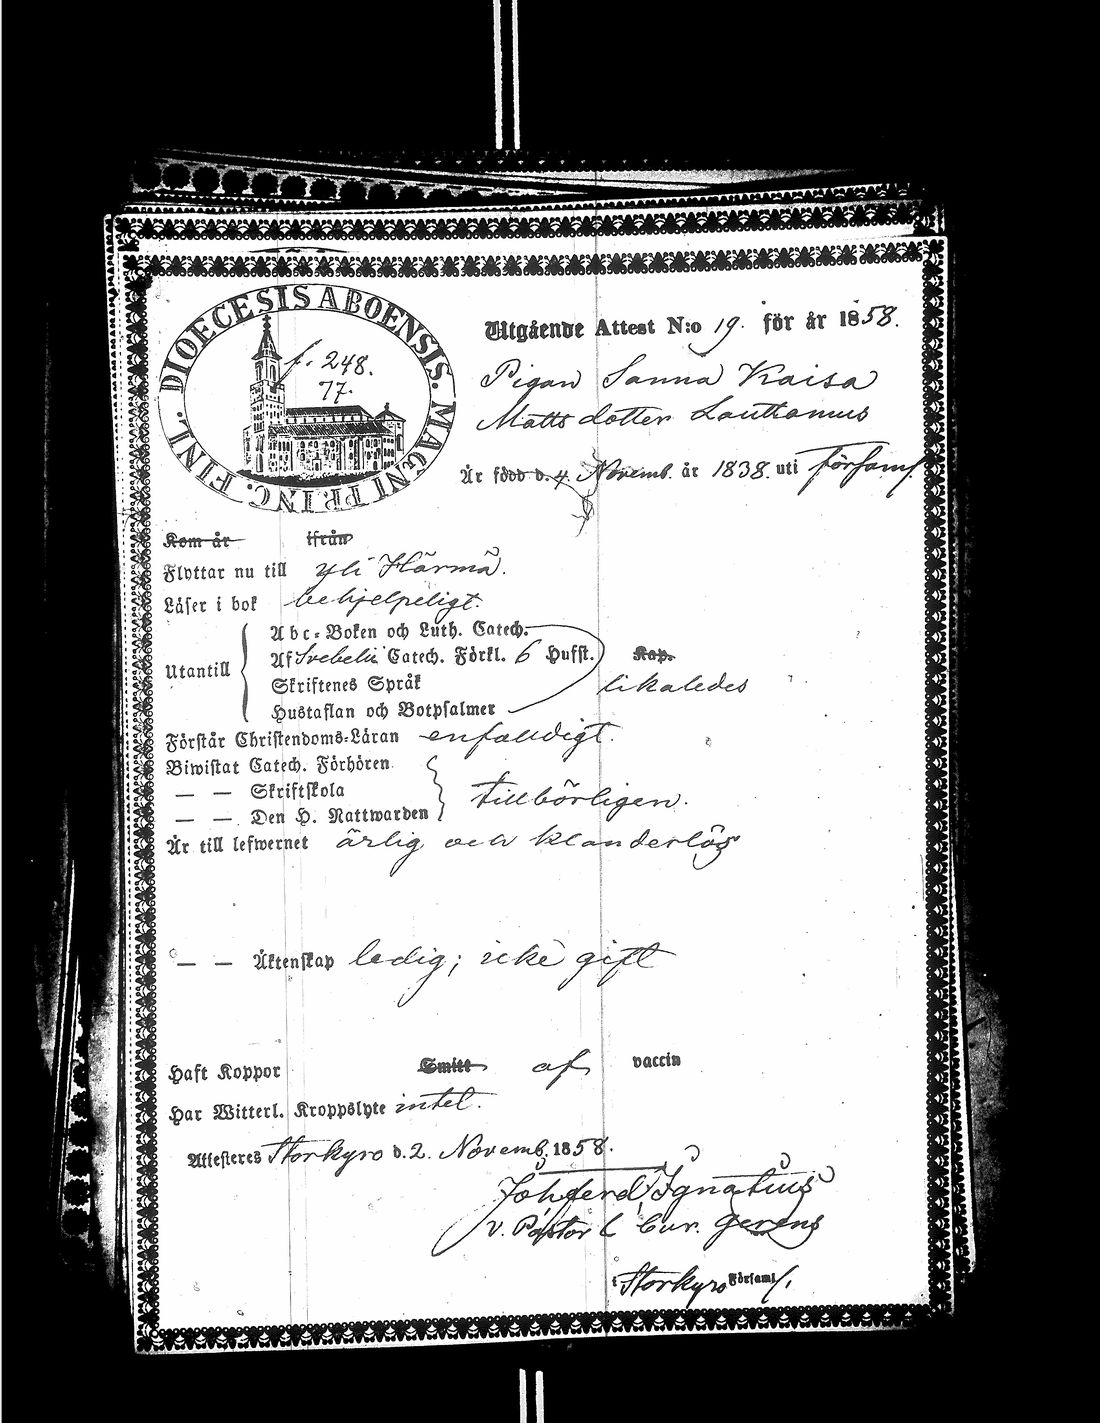 DIOECESIS ABOENSIS. MAGNI PRINC. FINL.
f. 248.
77.
Utgående Attest N:o 19. för år 1858.
Pigan Sanna Kaisa
Matts dotter Lauthamus
Är född d. 4. Novemb. år 1838. uti Församl.
Kom år ifrån
Flyttar nu till yli Härmä.
Läser i bok behjelpeligt.
Utantill
Abc-Boken och Luth. Catech.
Af Svebelii Catech. Förkl. 6 Hufst. Kap.
Skriftenes Språk likaledes
Hustaflan och Botpsalmer
Förstår Christendoms-Läran enfaldigt.
Biwistat Catech. Förhören
— — Skriftskola tillbörligen.
— — Den H. Nattwarden
Är till lefwernet ärlig och klanderlös
— — Äktenskap ledig; icke gift
Haft Koppor Smitt af vaccin
Har Witterl. Kroppslyte intet.
Attesteres Storkyro d. 2. Novemb. 1858.
Ignatius
v. Pastor Cur. gerens
i Storkyro Församl.